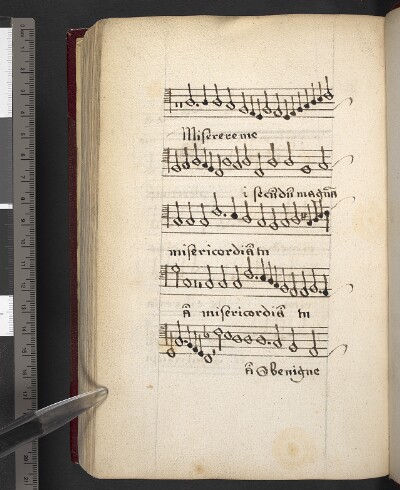 Miserere me
i secūdū magnā
misericordiā tu
ā misericordiā tu
ā O benigne